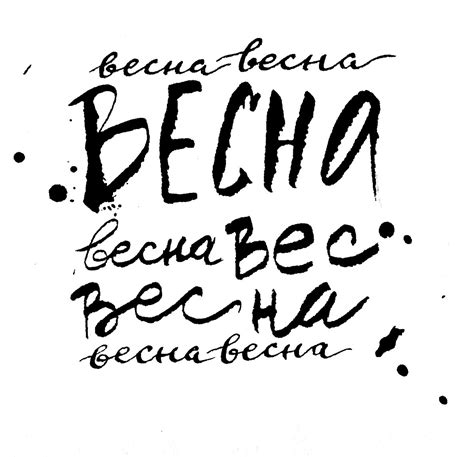 весна-весна
ВЕСНА
весна Вес
Весна
весна-весна